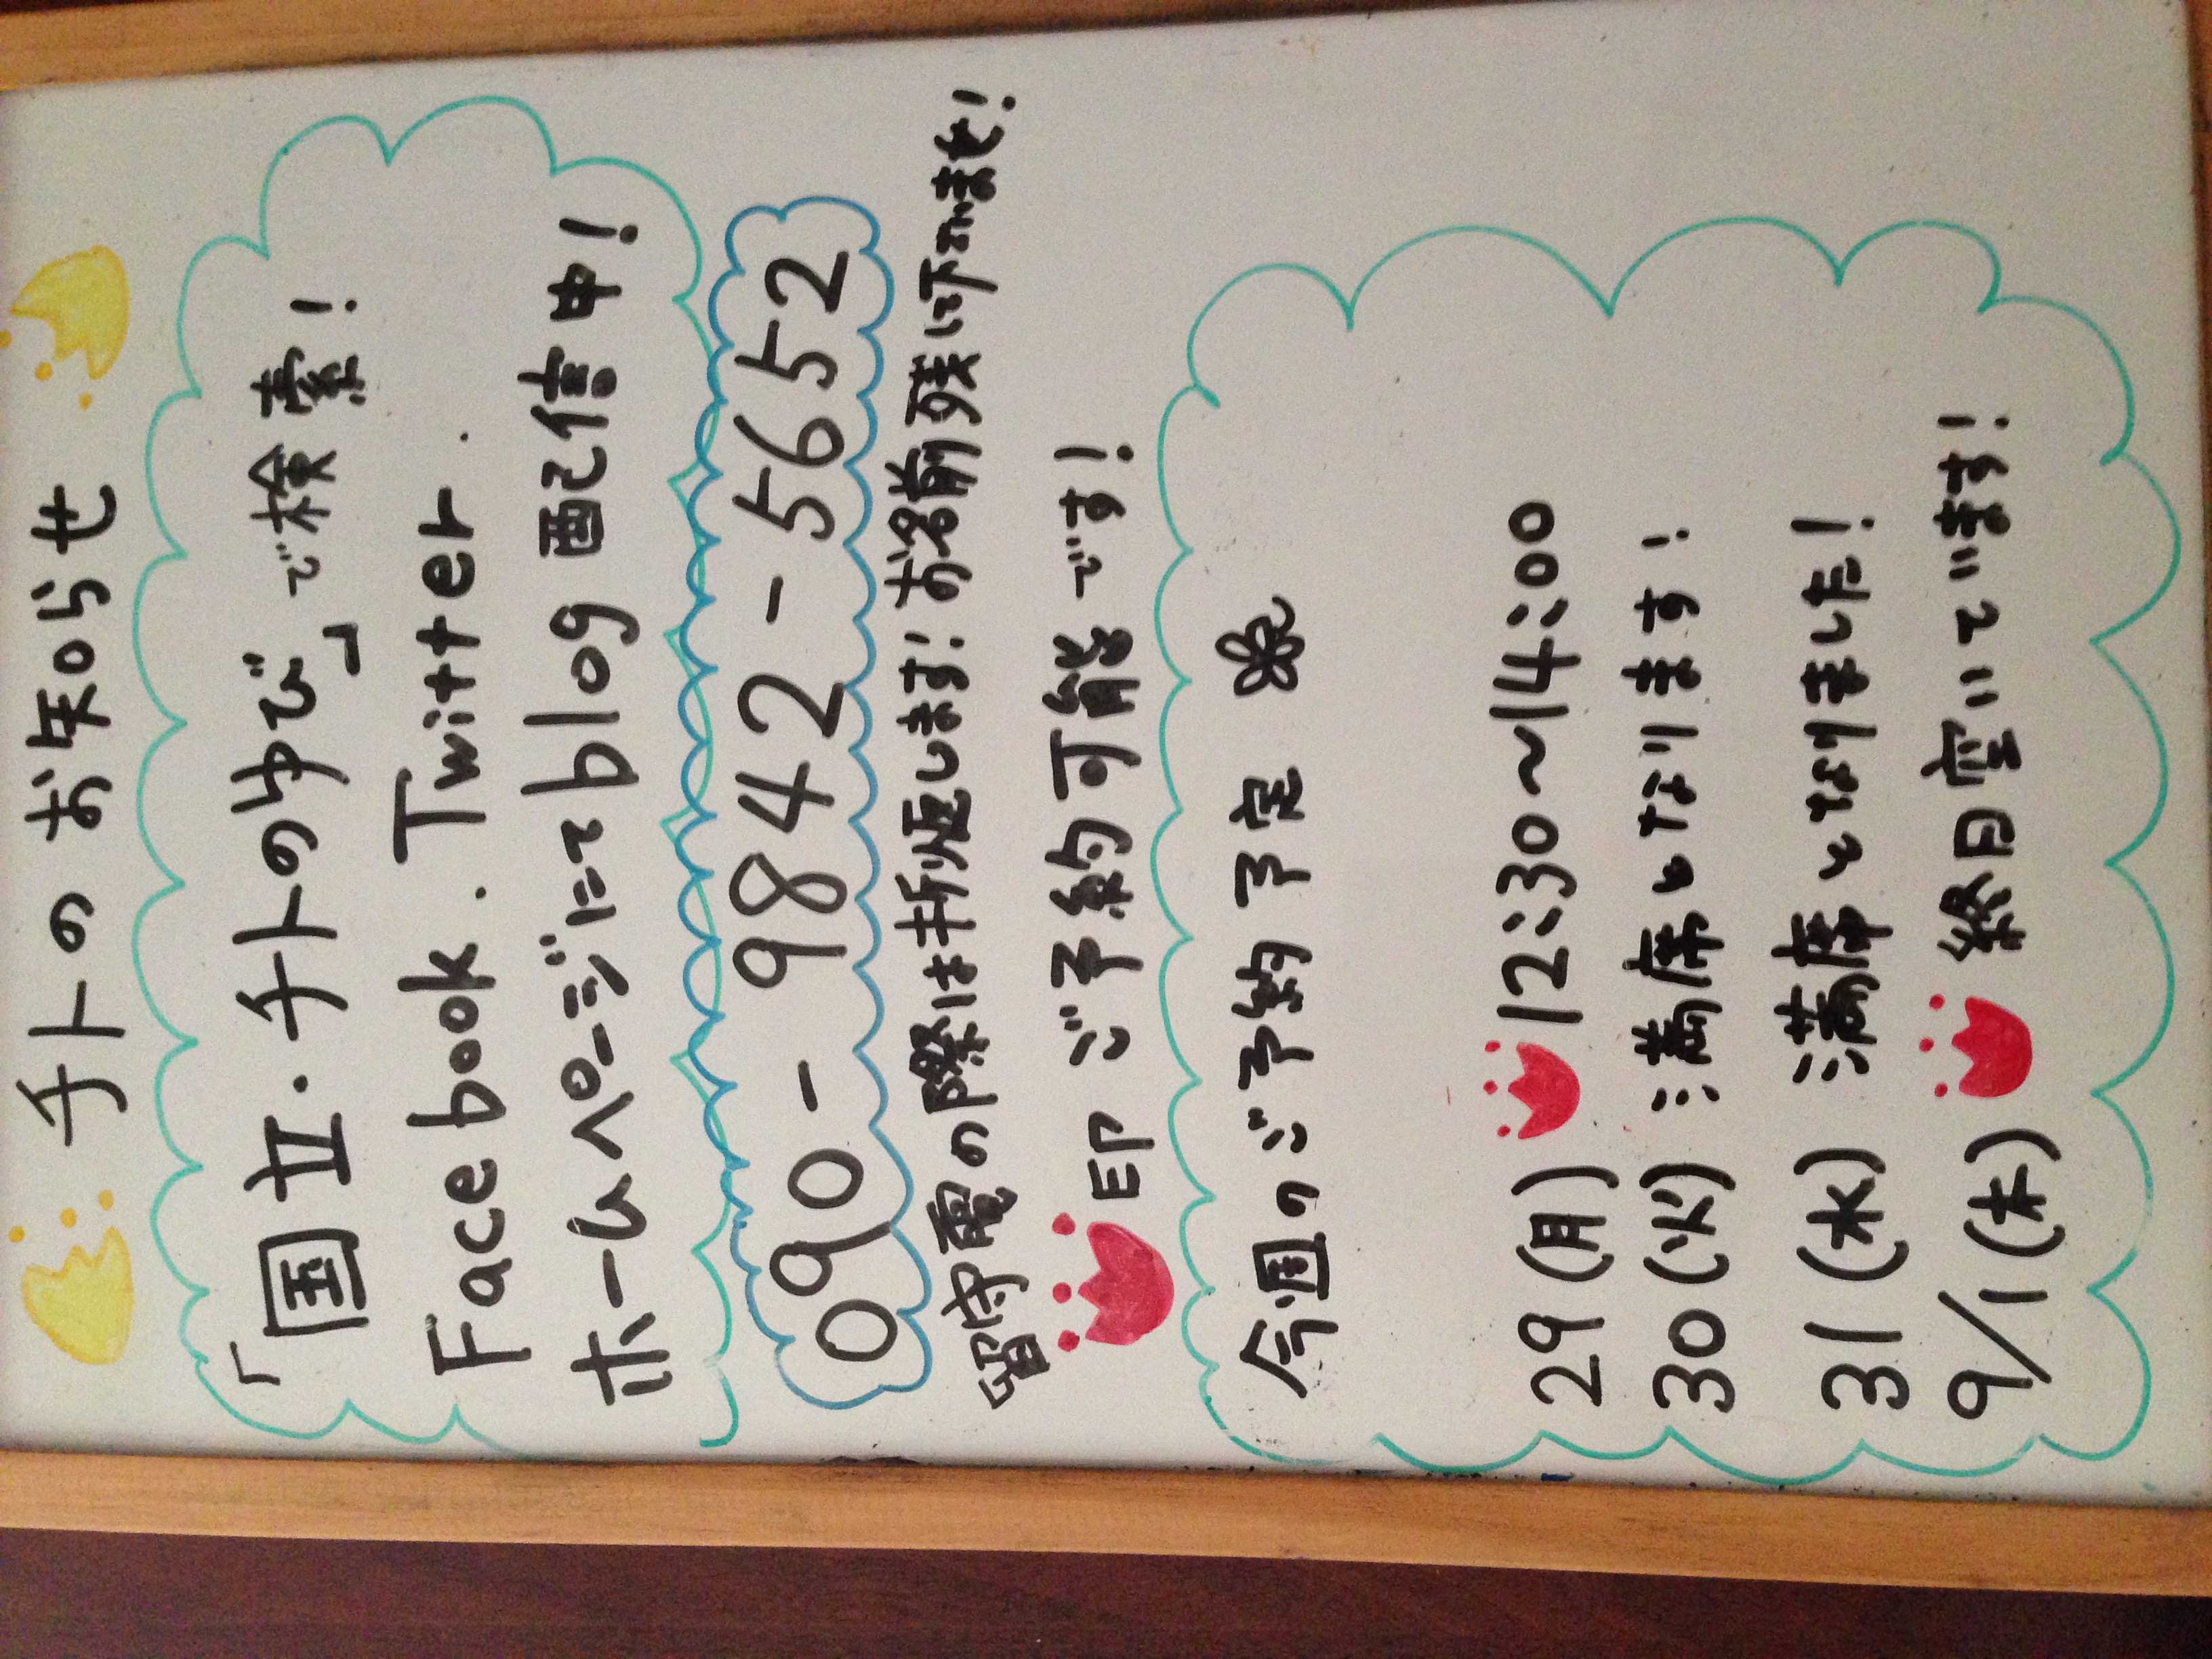 チトのお知らせ
「国立・チトのゆび」で検索!
Facebook. Twitter.
ホームページにてblog配信中!
090-9842-5652
留守電の際は折返します!お名前残して下さいませ!
印 ご予約可能です!
今週のご予約予定
29(月) 12:30~14:00
30(火) 満席となります!
31(水) 満席となりました!
9/1(木) 終日空いています!